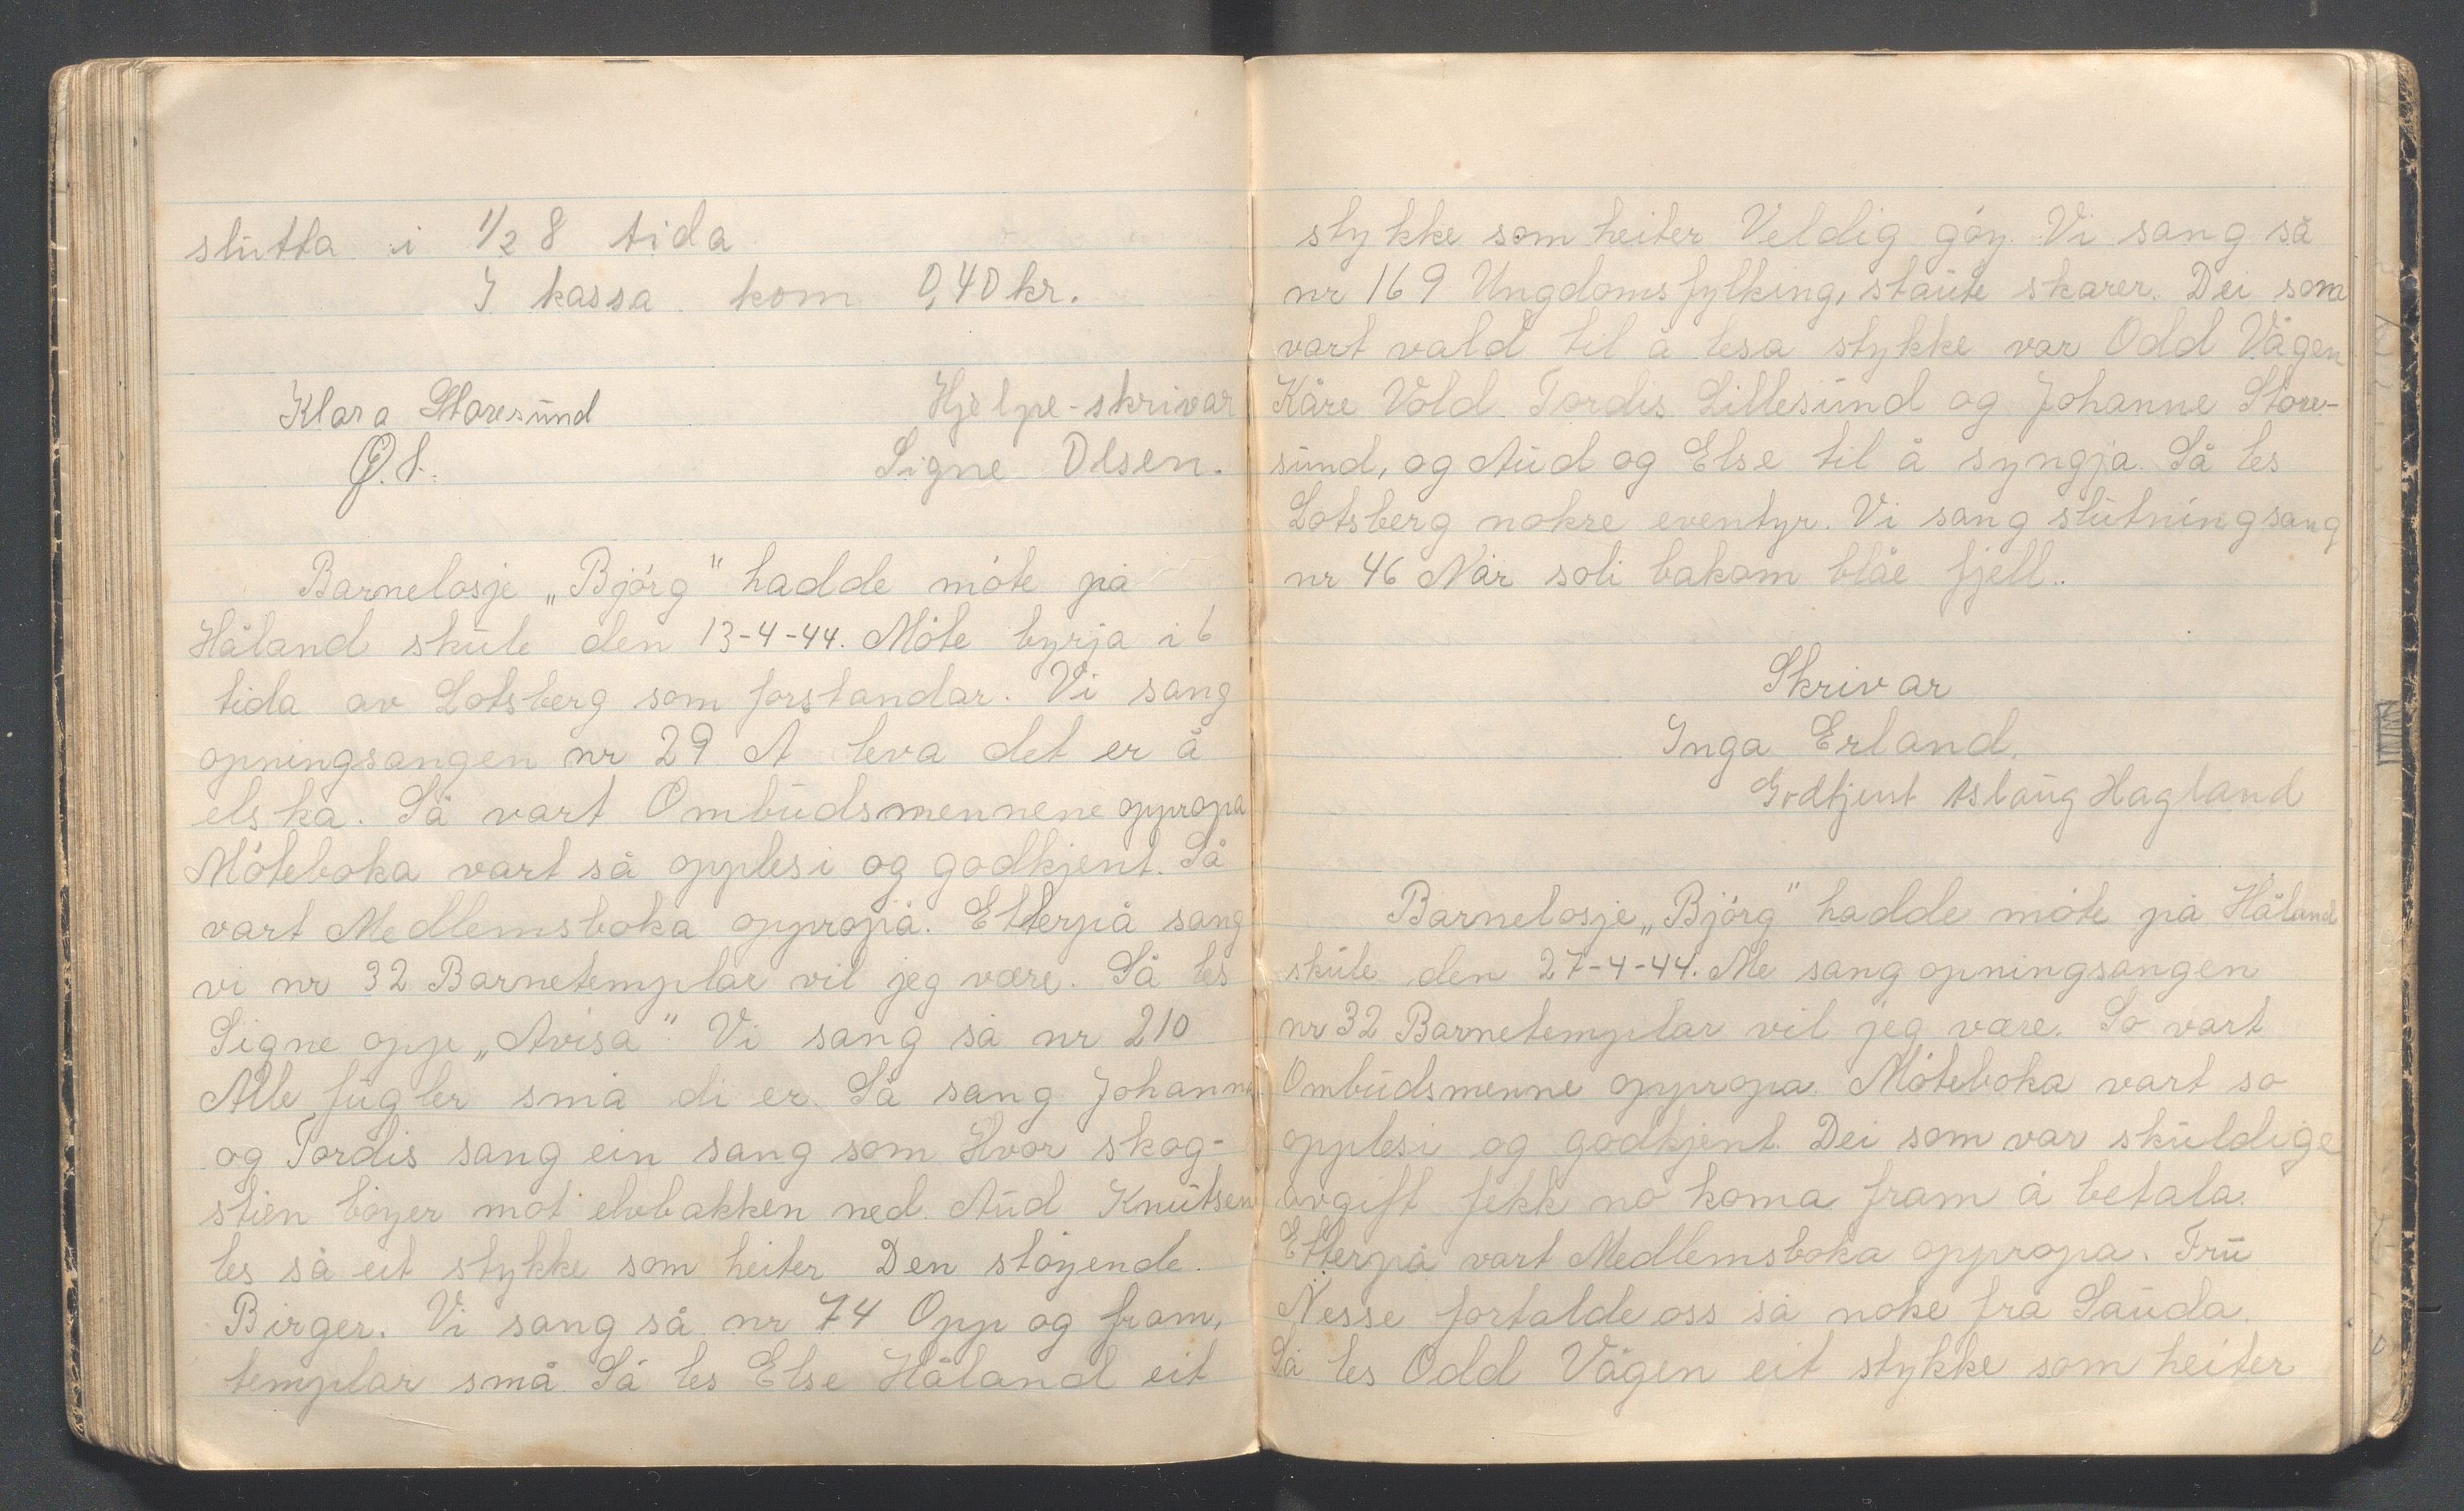 slutta i 1/2 8 tida
I kassa kom 0,40 kr.
Klara Storesund
Hjelpe-skrivar
Signe Olsen.
Barnelosje „Björg" hadde möte på
Håland skule den 13-4-44. Möte byrja i 6
tida av Lotsberg som forstandar. Vi sang
opningsangen nr 29 A leva det er å
elska. Så vart Ombudsmennene oppropa
Möteboka vart så opplesi og godkjent. Så
vart Medlemsboka oppropå. Etterpå sang
vi nr 32 Barnetemplar vil jeg være. Så les
Signe opp „Avisa" Vi sang så nr 210
Alle fugler små di er. Så sang Johanne
og Tordis sang ein sang som Hvor skog-
stien böyer mot elvbakken ned. Aud Knutsen
les så eit stykke som heiter Den støyende.
Birger. Vi sang så nr 74 Opp og fram,
templar små. Så les Else Håland eit
stykke som heiter Veldig göy. Vi sang så
nr 169 Ungdomsfylking, staute skarer. Dei som
vart vald til å lesa stykke var Odd Vågen
Kåre Vold Tordis Lillesund og Johanne Store-
sund, og Aud og Else til å syngja. Så les
Lotsberg nokre eventyr. Vi sang slutningsang
nr 46 Når soli bakom blåe fjell..
Skrivar
Inga Erland.
Godtjent Aslaug Hagland
Barnelosje „Björg" hadde möte på Håland
skule den 27-4-44. Me sang opningsangen
nr 32 Barnetemplar vil jeg være. So vart
Ombudsmenne oppropa. Möteboka vart so
opplesi og godkjent. Dei som var skuldige
avgift fekk no koma fram å betala.
Etterpå vart Medlemsboka oppropa. Fru
Nesse fortalde oss så noke frå Sauda.
Så les Odd Vågen eit stykke som heiter